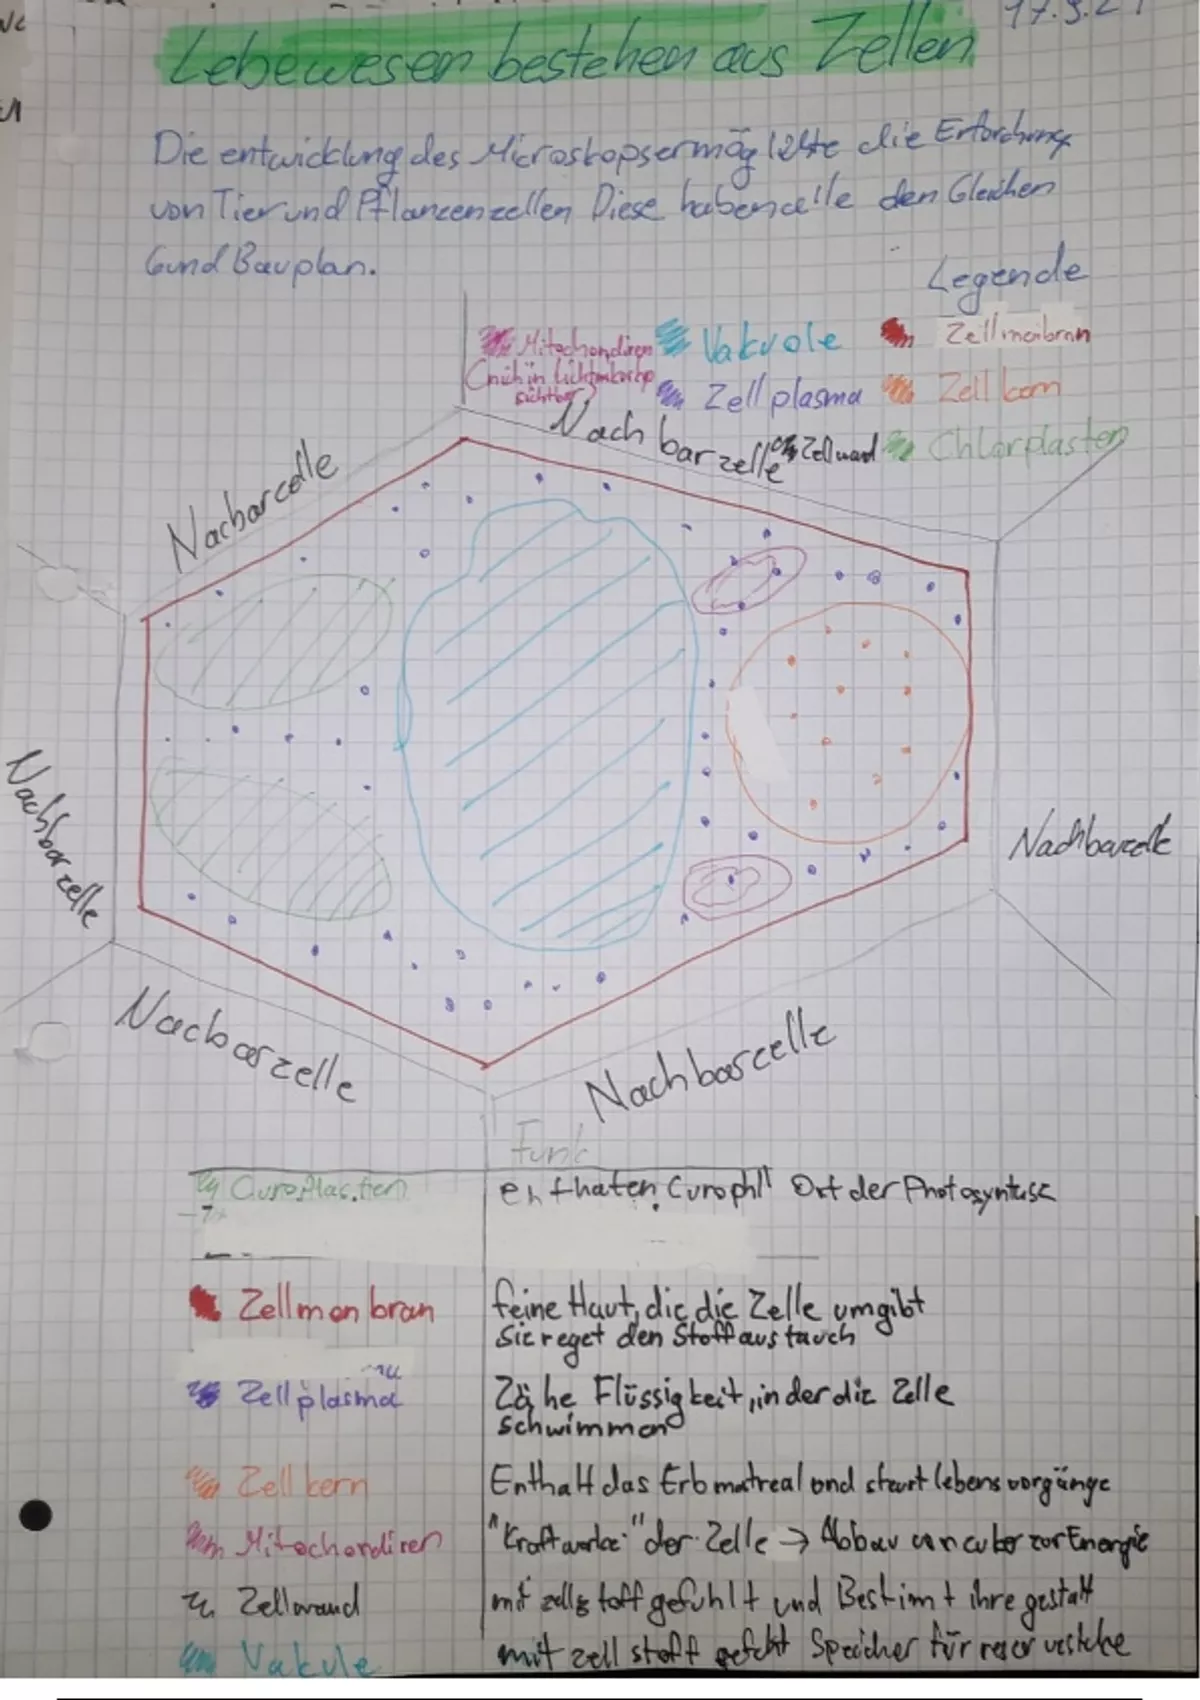 17.3.21
Lebewesen bestehen aus Zellen
Die entwicklung des Microskopsermöglichte die Erforchung
von Tier und Pflancenzellen Diese habenalle den Gleichen
Gund Bauplan.
Legende
Mitochondiren
(nich in lichtmikorskop
sichtbar)
Vakuole
Zellmenbran
Zellplasma
Zellkern
Zellwand
Chlorplasten
Nachbarzelle
Nacbarcelle
Nachbarzelle
Nachbarcelle
Nacbarzelle
Nachbarcelle
Funk
Curoplasten enthaten Curophll Ort der Photosyntese
Zellmenbran feine Haut, die die Zelle umgibt
Sie reget den Stoffaustauch
Zellplasma Zähe Flüssigkeit, in der die Zelle
schwimmen
Zellkern Enthalt das Erbmatreal und steurt lebensvorgänge
Mitochondiren "Kraftwerke" der Zelle → Abbau von cuker zur Energie
Zellwand mit zellstoff gefuhlt und Bestimt ihre gestalt
Vakule mit zellstoff gefehlt Speicher für